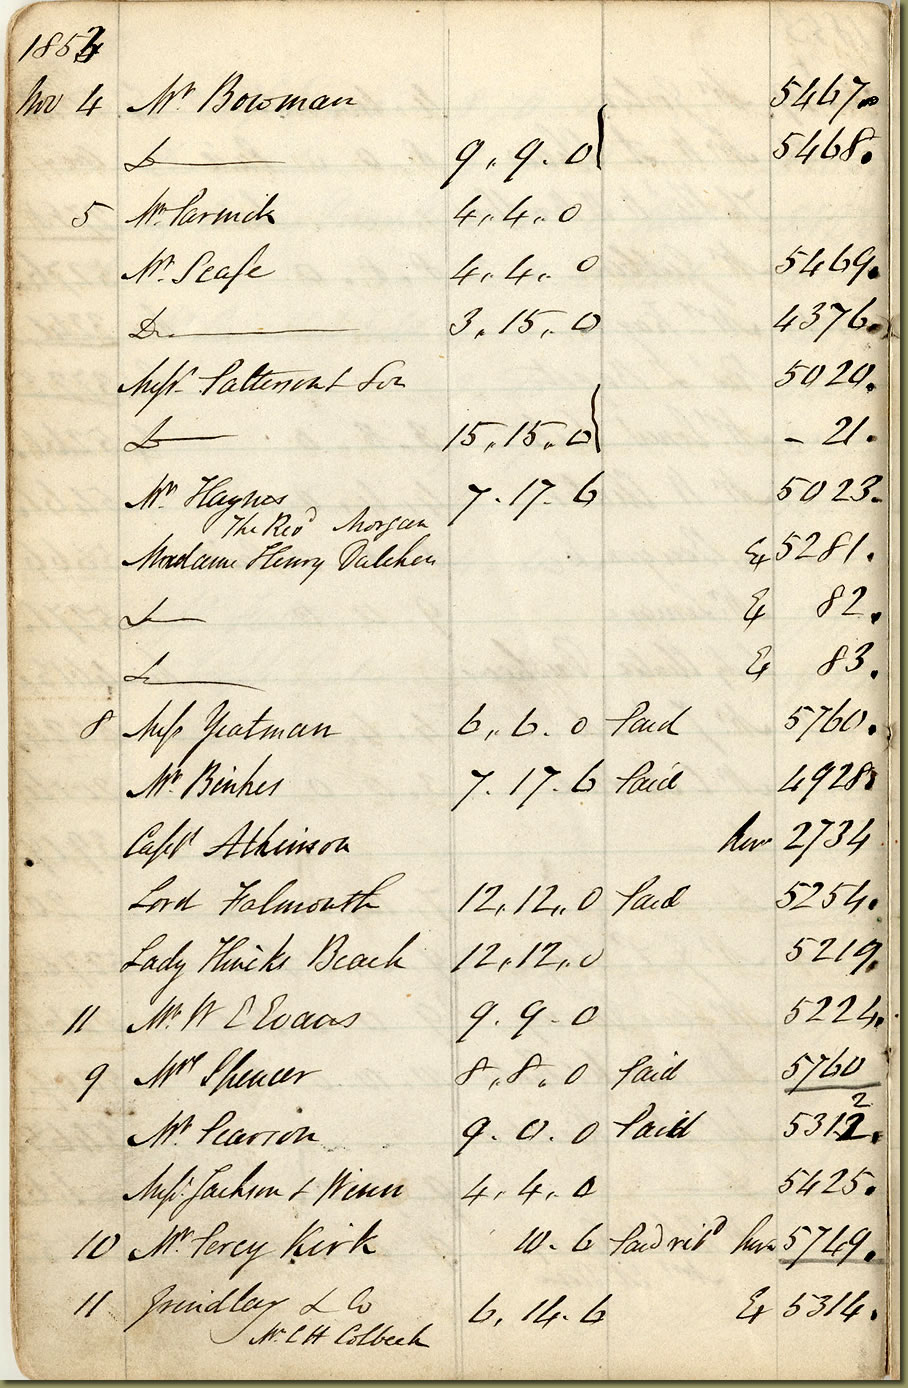 1854
Nov 4 Mr Bowman 5467.
D 9.. 9. 0 5468.
5 Mr 4.. 4.. 0
Mr Scafe 4.. 4. 0 5469.
Do 3.. 15.. 0 4376.
Messrs Patterson & Son 5020.
D 15.. 15.. 0 - 21.
Mr Haynes 7. 17. 6 5023.
The Revd Morgan
Madame Henry Ex 5281.
D Ex 82.
D Ex 83.
8 Miss Yeatman 6.. 6. 0 Paid 5760.
Mr Binkes 7. 17. 6 Paid 4928.
Captn Atkinson 2734
Lord Falmouth 12.. 12.. 0 Paid 5254.
Lady Hicks Beach 12.. 12.. 0 5219.
11 Mr W E Evans 9. 9. 0 5224.
9 Mrs Spencer 8.. 8.. 0 Paid 5760
2
Mr Pearson 9. 0. 0 Paid 5312.
Messrs Jackson & 4.. 4.. 0 5425.
10 Mr Percy Kirk 10. 6 Paid 5749.
11 Grindlay & Co 6.. 14. 6 Ex 5314.
Mr C H Colbeck